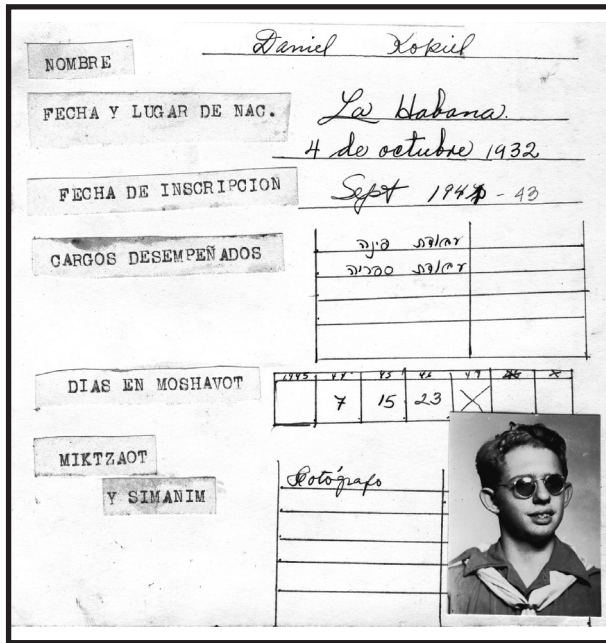 NOMBRE Daniel Kopiel
FECHA Y LUGAR DE NAC. La Habana.
4 de octubre 1932
FECHA DE INSCRIPCION Sept 194 - 43
CARGOS DESEMPEÑADOS
עבודת פינה
עבודת ספריה
DIAS EN MOSHAVOT
1945 44 45 46 47
7 15 23 X
MIKTZAOT Fotógrafo
Y SIMANIM